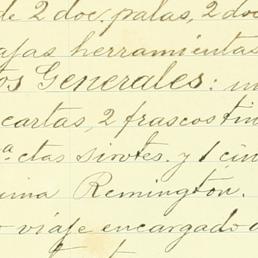 de 2 doc. palas, 2 doc
ajas herramientas
os Generales: un
cartas, 2 frascos tin
ª clas sirotes. y 1 cin
uina Remington.
o viaje encargado a